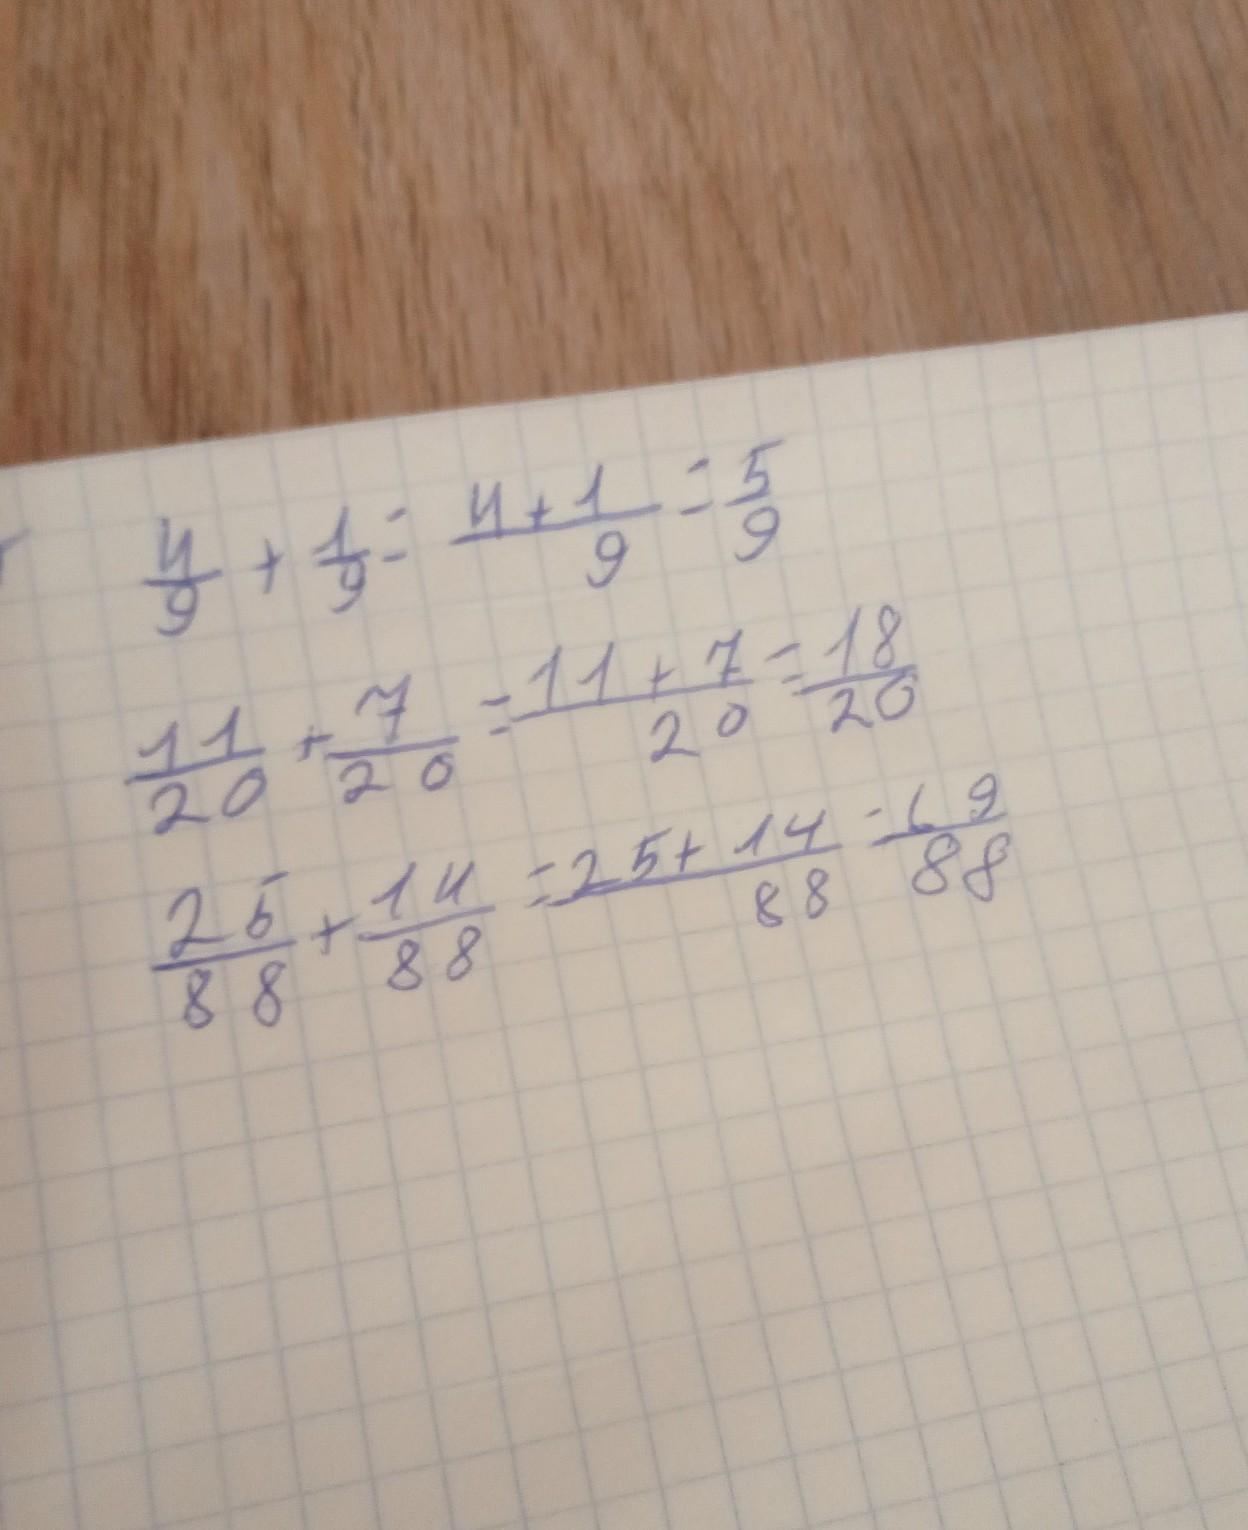 4/9 + 1/9 = 4+1/9 = 5/9
11/20 + 7/20 = 11+7/20 = 18/20
25/88 + 14/88 = 25+14/88 = 69/88